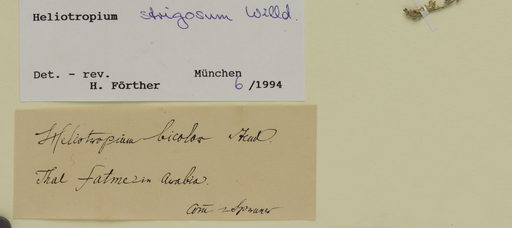 Heliotropium strigosum Willd.
Det. - rev. München
H. Förther 6 /1994
Heliotropium bicolor Steud.
Thal Fatme in Arabia.
Spruner